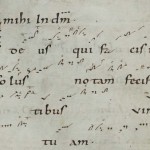 mihi In dm
de us qui fa cis
solus no tam fecis
tibus vir
tu am